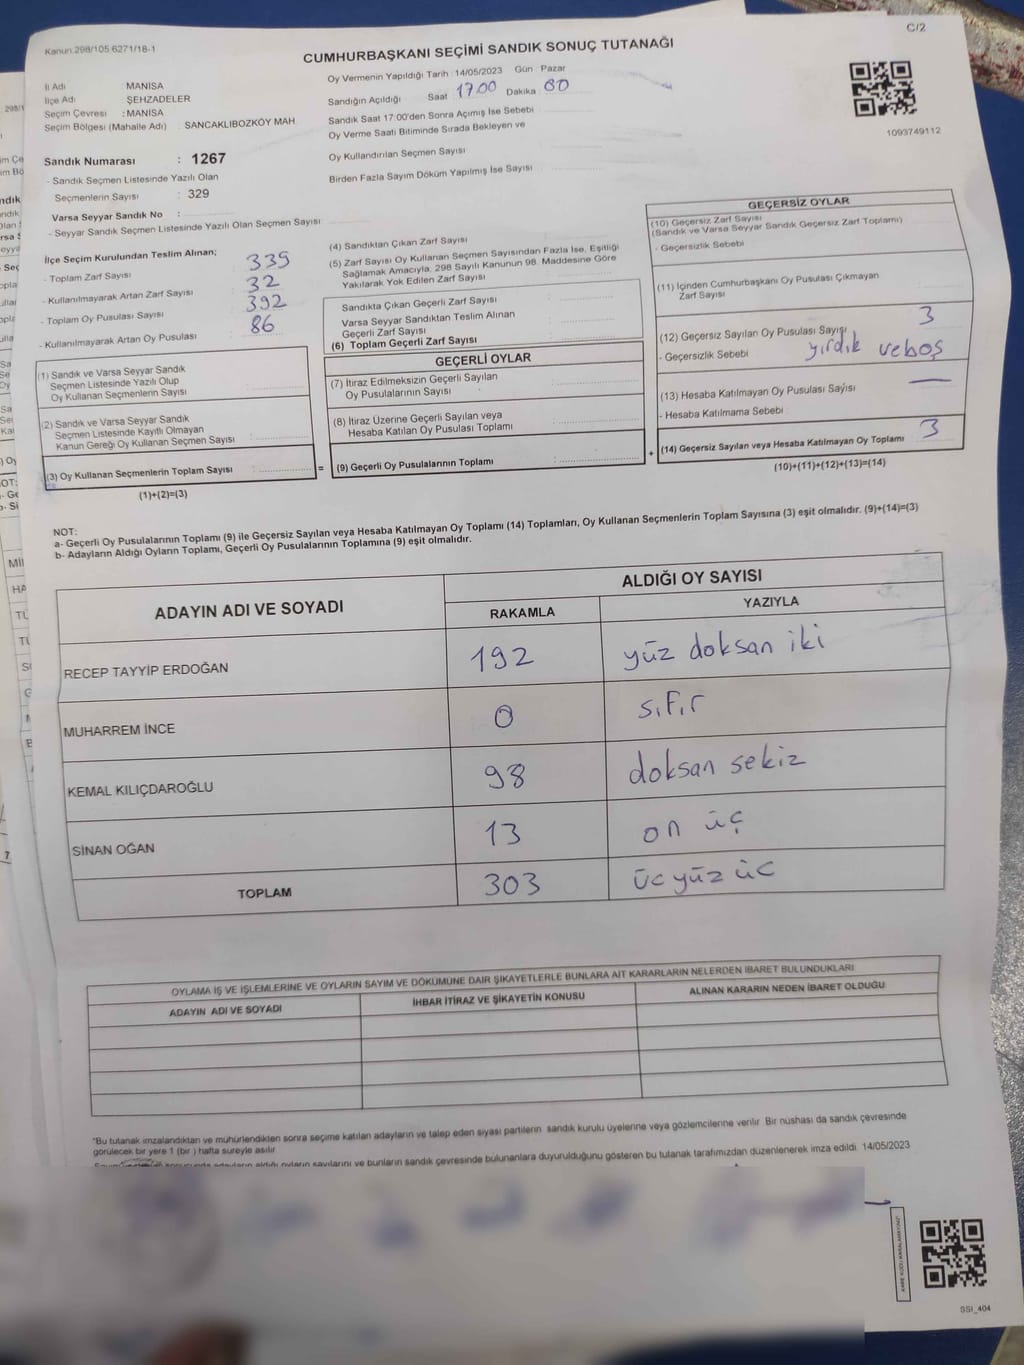 C/2
Kanun 298/105 6271/18-1
CUMHURBAŞKANI SEÇİMİ SANDIK SONUÇ TUTANAĞI
İl Adı : MANİSA
İlçe Adı : ŞEHZADELER
Seçim Çevresi : MANİSA
Seçim Bölgesi (Mahalle Adı) : SANCAKLIBOZKÖY MAH
Oy Vermenin Yapıldığı Tarih : 14/05/2023 Gün Pazar
Sandığın Açıldığı Saat 17.00 Dakika
Sandık Saat 17:00'den Sonra Açımış İse Sebebi
Oy Verme Saati Bitiminde Sırada Bekleyen ve
Oy Kullandırılan Seçmen Sayısı
Birden Fazla Sayım Döküm Yapılmış İse Sayısı
1093749112
Sandık Numarası : 1267
- Sandık Seçmen Listesinde Yazılı Olan
Seçmenlerin Sayısı : 329
Varsa Seyyar Sandık No :
- Seyyar Sandık Seçmen Listesinde Yazılı Olan Seçmen Sayısı
İlçe Seçim Kurulundan Teslim Alınan;
- Toplam Zarf Sayısı : 335
- Kullanılmayarak Artan Zarf Sayısı : 32
- Toplam Oy Pusulası Sayısı : 392
- Kullanılmayarak Artan Oy Pusulası : 86
(1) Sandık ve Varsa Seyyar Sandık
Seçmen Listesinde Yazılı Olup
Oy Kullanan Seçmenlerin Sayısı
(2) Sandık ve Varsa Seyyar Sandık
Seçmen Listesinde Kayıtlı Olmayan
Kanun Gereği Oy Kullanan Seçmen Sayısı
(3) Oy Kullanan Seçmenlerin Toplam Sayısı : =
(1)+(2)=(3)
(4) Sandıktan Çıkan Zarf Sayısı
(5) Zarf Sayısı Oy Kullanan Seçmen Sayısından Fazla İse, Eşitliği
Sağlamak Amacıyla, 298 Sayılı Kanunun 98. Maddesine Göre
Yakılarak Yok Edilen Zarf Sayısı
Sandıkta Çıkan Geçerli Zarf Sayısı
Varsa Seyyar Sandıktan Teslim Alınan
Geçerli Zarf Sayısı
(6) Toplam Geçerli Zarf Sayısı
GEÇERLİ OYLAR
(7) İtiraz Edilmeksizin Geçerli Sayılan
Oy Pusulalarının Sayısı
(8) İtiraz Üzerine Geçerli Sayılan veya
Hesaba Katılan Oy Pusulası Toplamı
(9) Geçerli Oy Pusulalarının Toplamı : +
GEÇERSİZ OYLAR
(10) Geçersiz Zarf Sayısı
(Sandık ve Varsa Seyyar Sandık Geçersiz Zarf Toplamı)
- Geçersizlik Sebebi
(11) İçinden Cumhurbaşkanı Oy Pusulası Çıkmayan
Zarf Sayısı
(12) Geçersiz Sayılan Oy Pusulası Sayışı 3
- Geçersizlik Sebebi yırdık veboş
(13) Hesaba Katılmayan Oy Pusulası Sayısı —
- Hesaba Katılmama Sebebi
(14) Geçersiz Sayılan veya Hesaba Katılmayan Oy Toplamı 3
(10)+(11)+(12)+(13)=(14)
NOT:
a- Geçerli Oy Pusulalarının Toplamı (9) ile Geçersiz Sayılan veya Hesaba Katılmayan Oy Toplamı (14) Toplamları, Oy Kullanan Seçmenlerin Toplam Sayısına (3) eşit olmalıdır. (9)+(14)=(3)
b- Adayların Aldığı Oyların Toplamı, Geçerli Oy Pusulalarının Toplamına (9) eşit olmalıdır.
ADAYIN ADI VE SOYADI
ALDIĞI OY SAYISI
RAKAMLA YAZIYLA
RECEP TAYYİP ERDOĞAN 192 yüz doksan iki
MUHARREM İNCE 0 sıfır
KEMAL KILIÇDAROĞLU 98 doksan sekiz
SİNAN OĞAN 13 on üç
TOPLAM 303 üc yüz üc
OYLAMA İŞ VE İŞLEMLERİNE VE OYLARIN SAYIM VE DÖKÜMÜNE DAİR ŞİKAYETLERLE BUNLARA AİT KARARLARIN NELERDEN İBARET BULUNDUKLARI
ADAYIN ADI VE SOYADI İHBAR İTİRAZ VE ŞİKAYETİN KONUSU ALINAN KARARIN NEDEN İBARET OLDUĞU
*Bu tutanak imzalandıktan ve mühürlendikten sonra seçime katılan adayların ve talep eden siyasi partilerin sandık kurulu üyelerine veya gözlemcilerine verilir. Bir nüshası da sandık çevresinde
görülecek bir yere 1 (bir) hafta süreyle asılır
adayların aldığı oyların sayılarını ve bunların sandık çevresinde bulunanlara duyurulduğunu gösteren bu tutanak tarafımızdan düzenlenerek imza edildi. 14/05/2023
SSI_404